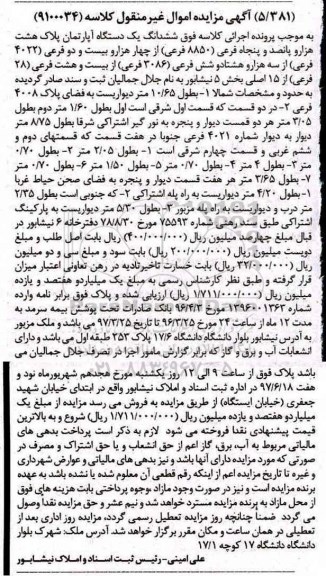 (۵/۳۸۱) آگهی مزایده اموال غیرمنقول کلاسه (۹۱۰۰۰۳۴)
به موجب پرونده اجرائی کلاسه فوق ششدانگ یک دستگاه آپارتمان پلاک هشت
هزارو پانصد و پنجاه فرعی (۸۸۵۰ فرعی) از چهار هزارو بیست و دو فرعی (۴۰۲۲
فرعی) از سه هزارو هشتادو شش فرعی (۳۰۸۶ فرعی) از بیست و هشت فرعی (۲۸
فرعی) از ۱۵ اصلی بخش ۵ نیشابور به نام جلال جمالیان ثبت و سند صادر گردیده
به حدود و مشخصات شمالا ۱-بطول ۱۰/۶۵ متر دیواریست به فضای پلاک ۴۰۰۸
فرعی ۲- در دو قسمت که قسمت اول شرقی است اول بطول ۱/۶۰ متر دوم بطول
۳/۰۵ متر هر دو قمست دیوار و پنجره به نور گیر اشتراکی شرقا بطول ۸/۷۵ متر
دیوار به دیوار شماره ۴۰۲۱ فرعی جنوبا در هفت قسمت که قسمتهای دوم و
ششم غربی و قسمت چهارم شرقی است ۱- بطول ۲/۰۵ متر ۲- بطول ۰/۷۰
متر ۳- بطول ۴ متر ۴- بطول ۰/۷۰ متر ۵- بطول ۱/۵۰ متر ۶- بطول ۰/۷۰ متر
۷- بطول ۳/۶۵ متر هر هفت قسمت دیوار و پنجره به فضای صحن حیاط غربا
۱- بطول ۴/۲۰ متر دیواریست به راه پله اشتراکی ۲- که جنوبی است بطول ۲/۳۵
متر درب و دیواریست به راه پله مزبور ۳- بطول ۵/۳۰ متر دیواریست به پارکینگ
اشتراکی طبق سند رهنی شماره ۷۵۵۹۳ مورخ ۷۸/۸/۳۰ دفترخانه ۶ نیشابور در
قبال مبلغ چهارصد میلیون ریال (۴۰۰/۰۰۰/۰۰۰ ریال) بابت اصل طلب و مبلغ
دویست میلیون ریال (۲۰۰/۰۰۰/۰۰۰ ریال) بابت سود و مبلغ سی و دو میلیون
ریال (۳۲/۰۰۰/۰۰۰ ریال) بابت خسارت تاخیرتادیه در رهن تعاونی اعتبار میزان
قرار گرفته و طبق نظر کارشناس رسمی به مبلغ یک میلیاردو هفتصد و یازده
میلیون ریال (۱/۷۱۱/۰۰۰/۰۰۰ ریال) ارزیابی شده و پلاک فوق برابر نامه وارده
شماره ۱۳۶۲۰ – ۱۳۹۶۰ مورخ ۹۶/۴/۳ بانک صادرات تحت پوشش بیمه سرمد به
مدت ۱۲ ماه از ساعت ۲۴ مورخ ۹۶/۳/۲۵ تا تاریخ ۹۷/۳/۲۵ می باشد و ملک مزبور
به آدرس نیشابور بلوار دانشگاه دانشگاه ۱۷/۶ پلاک ۳۵۳ طبقه اول می باشد و دارای
انشعابات آب و برق و گاز که برابر گزارش مامور اجرا در تصرف جلال جمالیان می
باشد پلاک فوق از ساعت ۹ الی ۱۲ روز یکشنبه مورخ هجدهم شهریورماه نود و
هفت ۹۷/۶/۱۸ در اداره ثبت اسناد و املاک نیشابور واقع در ابتدای خیابان شهید
جعفری (خیابان ایستگاه) از طریق مزایده به فروش می رسد مزایده از مبلغ یک
میلیاردو هفتصد و یازده میلیون ریال (۱/۷۱۱/۰۰۰/۰۰۰ ریال) شروع و به بالاترین
قیمت پیشنهادی نقدا فروخته می شود لازم به ذکر است پرداخت بدهی های
مالیاتی مربوط به آب، برق، گاز اعم از حق انشعاب و یا حق اشتراک و مصرف در
صورتی که مورد مزایده دارای آنها باشد و نیز بدهی های مالیاتی و عوارض شهرداری
و غیره تا تاریخ مزایده اعم از اینکه رقم قطعی آن معلوم شده یا نشده باشد به عهده
برنده مزایده است و نیز در صورت وجود مازاد ،وجوه پرداختی بابت هزینه های فوق
از محل مازاد به برنده مزایده مسترد خواهد شد و نیم عشر و حق مزایده نقدا وصول
می گردد ضمناً چنانچه روز مزایده تعطیل رسمی گردد، مزایده روز اداری بعد از
تعطیلی در همان ساعت و مکان مقرر برگزار خواهد شد. آدرس ملک: شهرک بلوار
دانشگاه دانشگاه ۱۷ کوچه ۱۷/۱
علی امینی- رئیس ثبت اسناد و املاک نیشابور